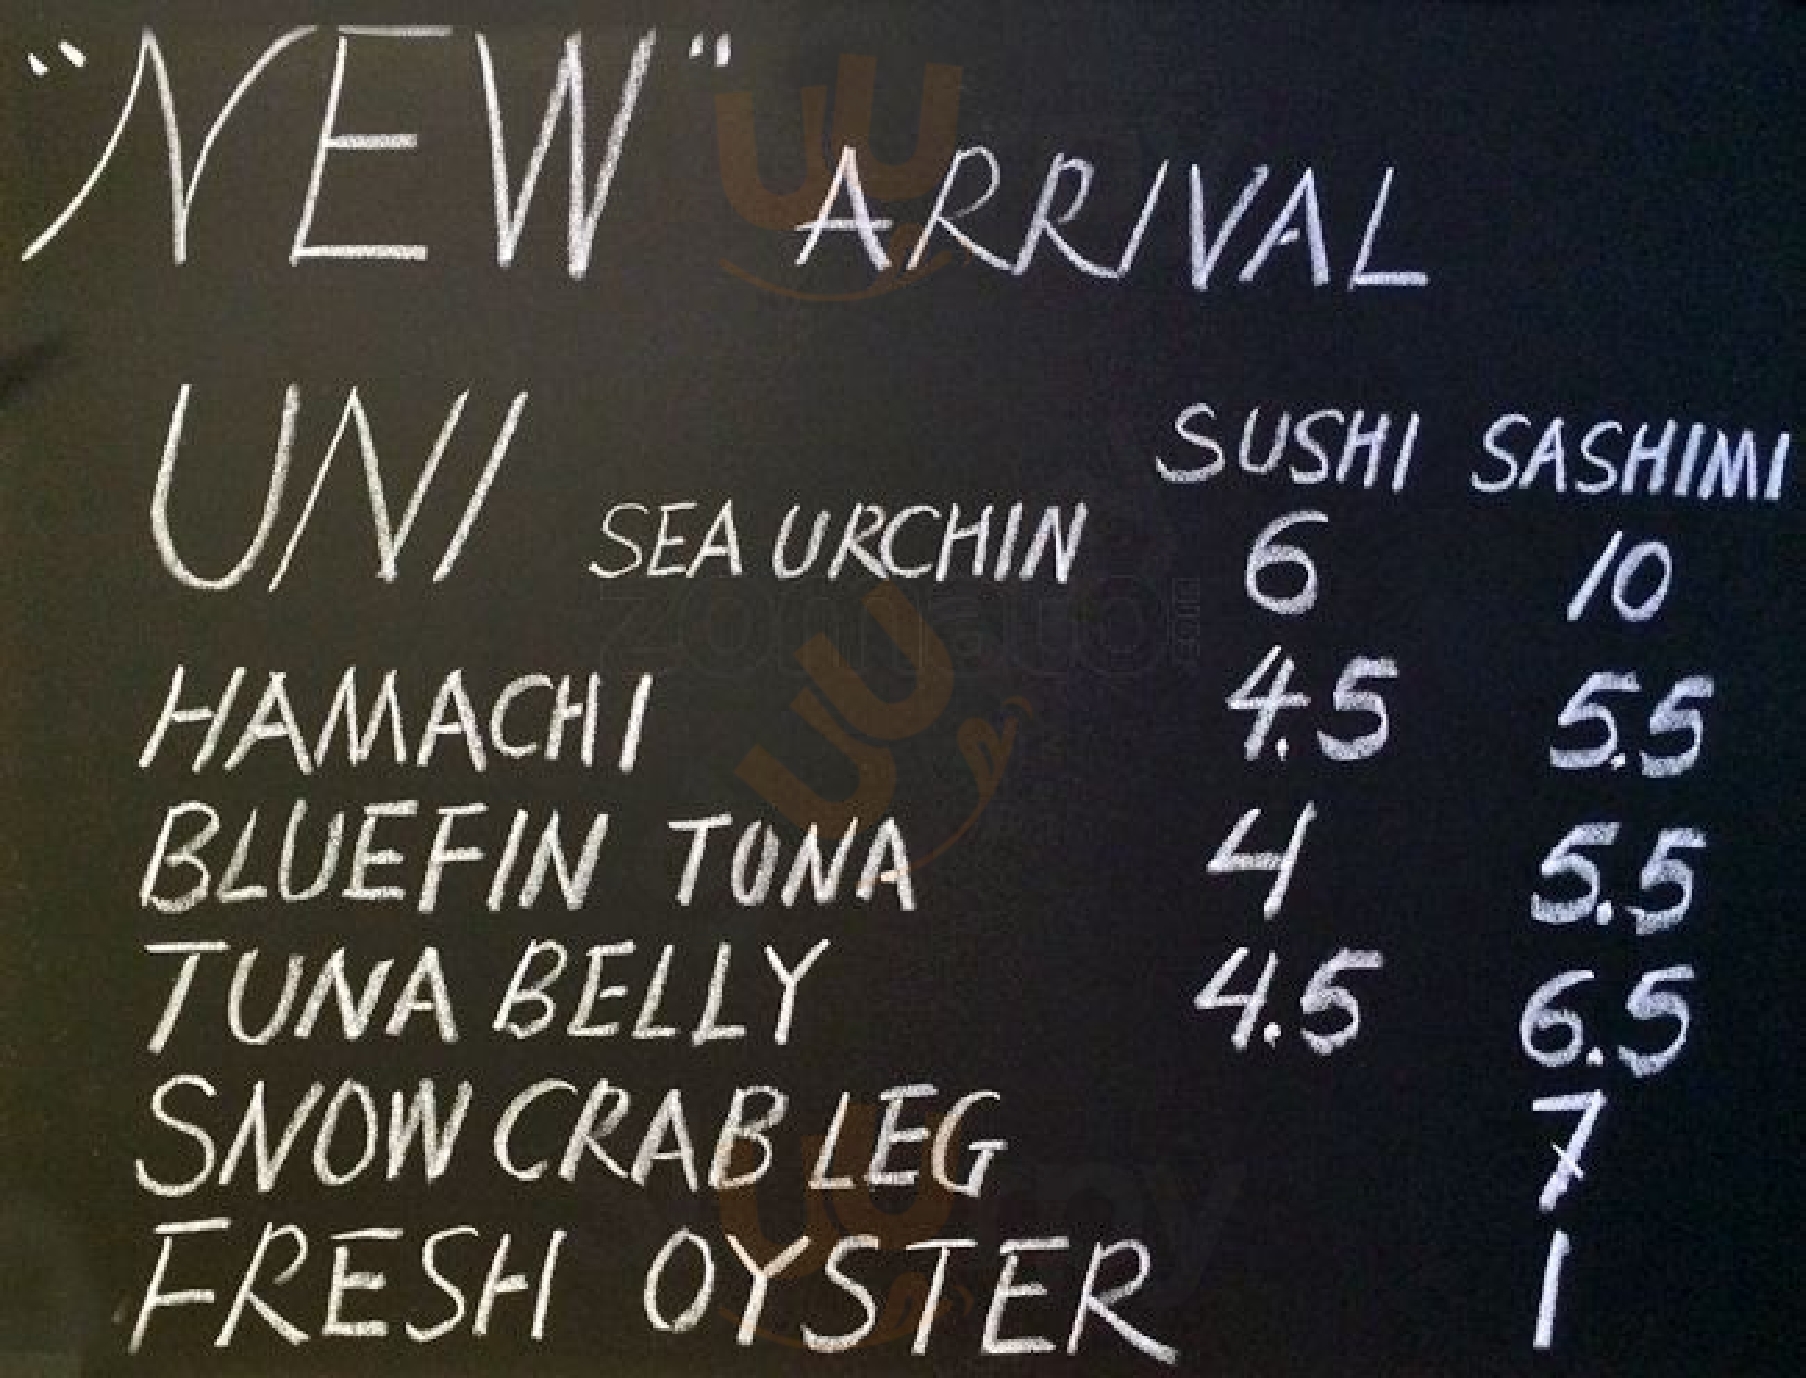 "NEW" ARRIVAL
SUSHI SASHIMI
UNI SEA URCHIN 6 10
HAMACHI 4.5 5.5
BLUEFIN TUNA 4 5.5
TUNA BELLY 4.5 6.5
SNOW CRAB LEG 7
FRESH OYSTER 1
zomato.com